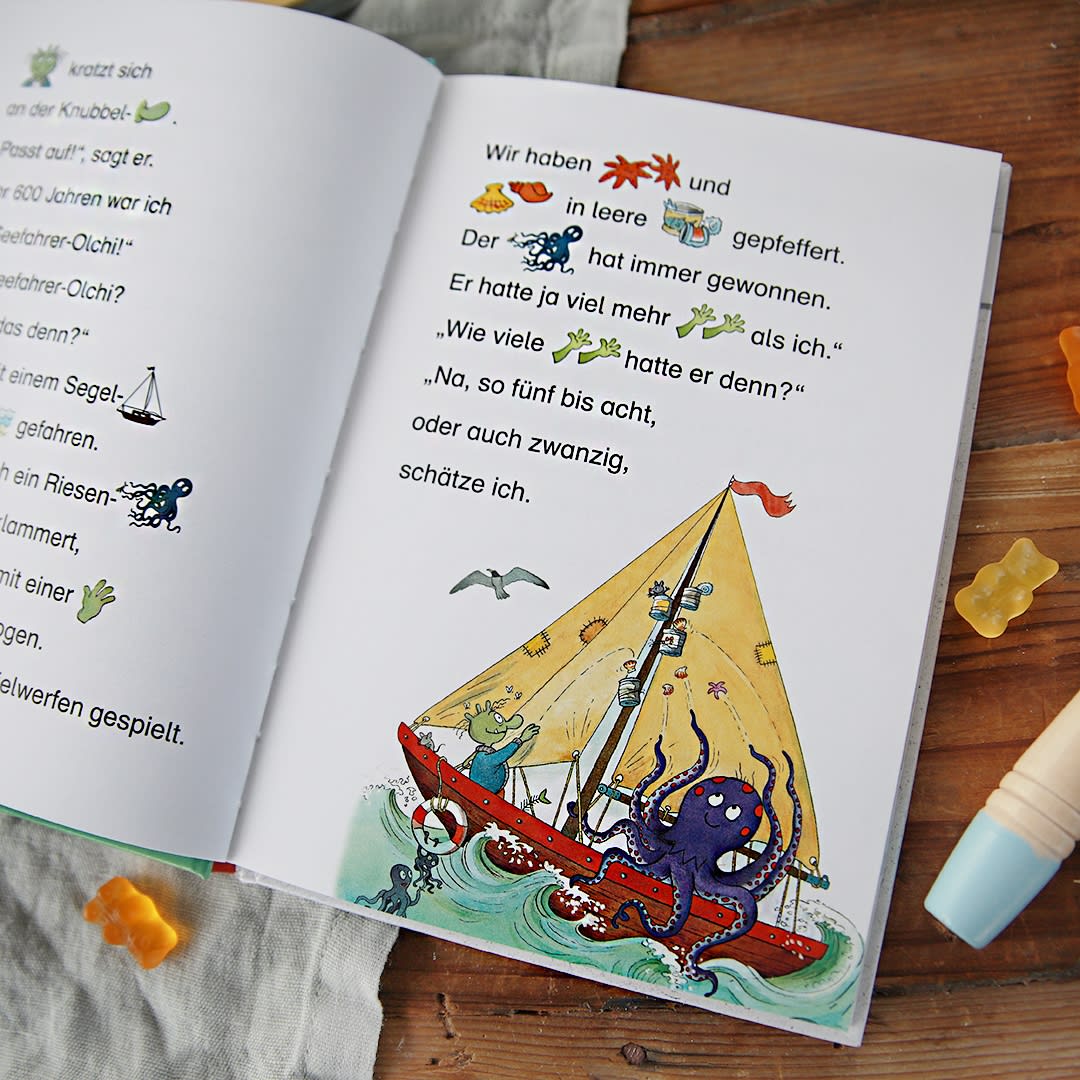 kratzt sich
an der Knubbel- .
Passt auf!“, sagt er.
600 Jahren war ich
Seefahrer-Olchi!“
Seefahrer-Olchi?
das denn?“
einem Segel-
gefahren.
ein Riesen-
klammert,
mit einer
gespielt.
Wir haben und
in leere gepfeffert.
Der hat immer gewonnen.
Er hatte ja viel mehr als ich.“
„Wie viele hatte er denn?“
„Na, so fünf bis acht,
oder auch zwanzig,
schätze ich.